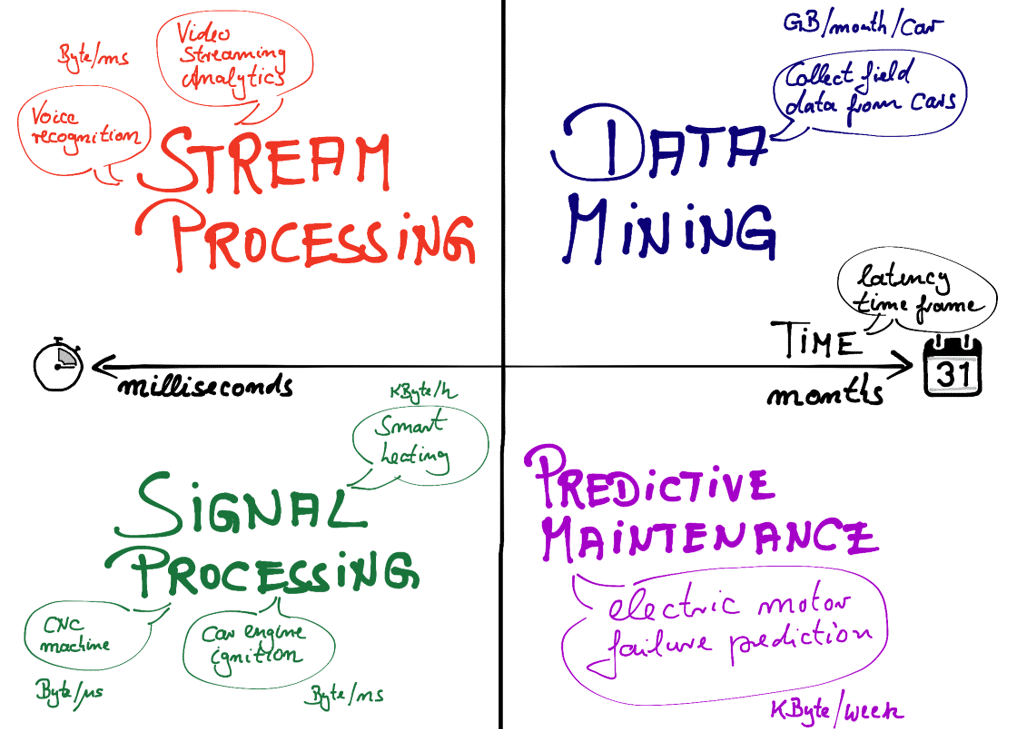 Byte/ms
Video
Streaming
Analytics
Voice
recognition
STREAM
PROCESSING
GB/month/Car
Collect field
data from cars
DATA
MINING
latency
time frame
TIME
milliseconds
months
31
KByte/h
Smart
heating
SIGNAL
PROCESSING
CNC
machine
Byte/µs
Car engine
ignition
Byte/ms
PREDICTIVE
MAINTENANCE
electric motor
failure prediction
KByte/week